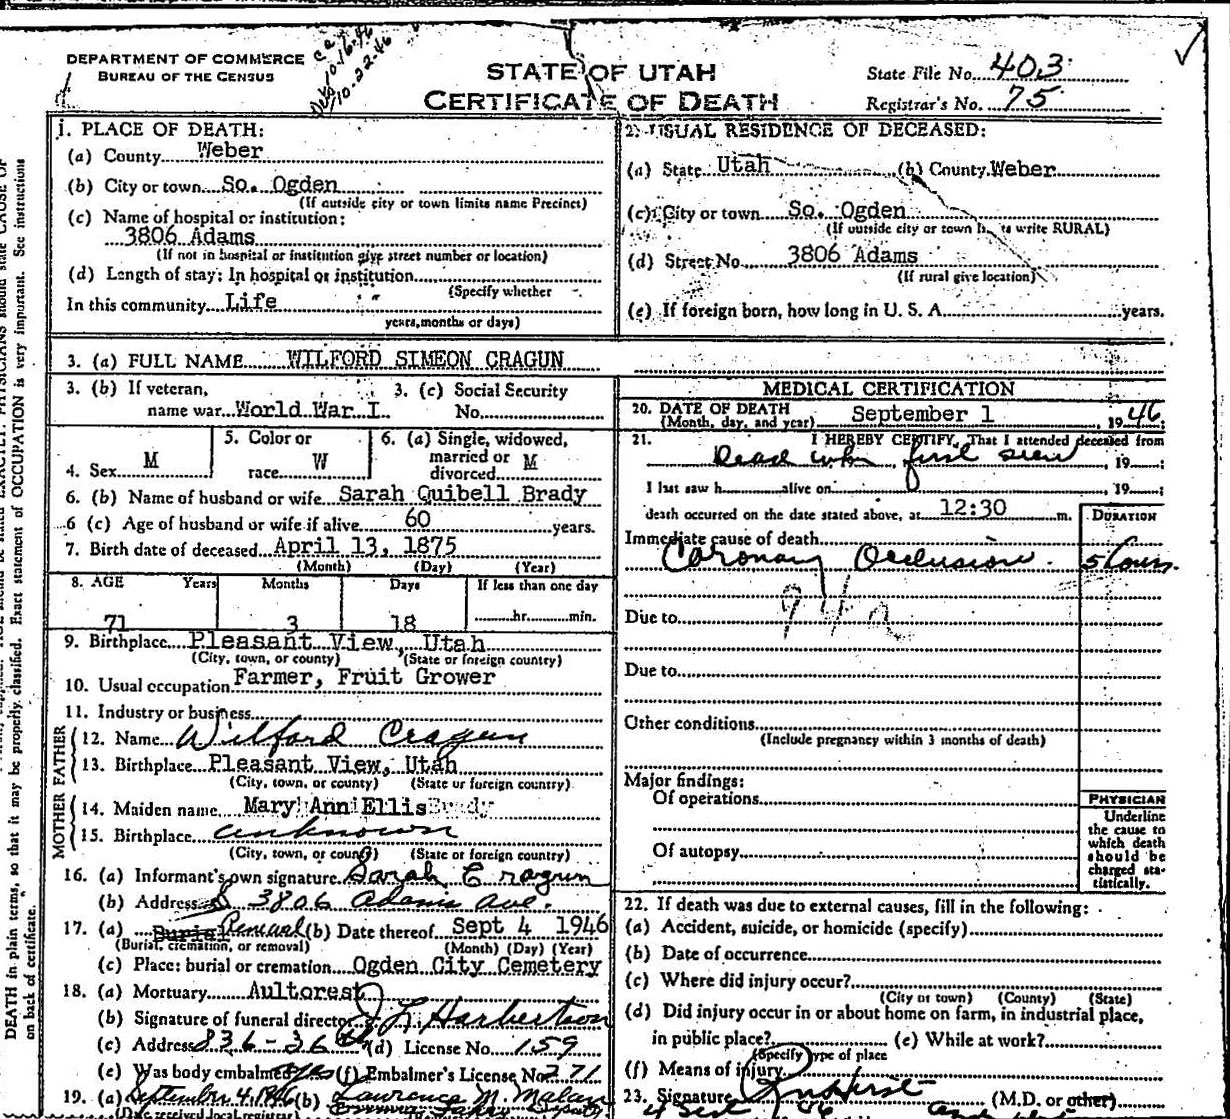 DEPARTMENT OF COMMERCE
BUREAU OF THE CENSUS
10-16-46
10-22-46
STATE OF UTAH
CERTIFICATE OF DEATH
State File No. 403
Registrar's No. 75
1. PLACE OF DEATH:
(a) County Weber
(b) City or town So. Ogden
(If outside city or town limits name Precinct)
(c) Name of hospital or institution:
3806 Adams
(If not in hospital or institution give street number or location)
(d) Length of stay: In hospital or institution
(Specify whether
In this community Life
years, months or days)
2. USUAL RESIDENCE OF DECEASED:
(a) State Utah (b) County Weber
(c) City or town So. Ogden
(If outside city or town write RURAL)
(d) Street No. 3806 Adams
(If rural give location)
(e) If foreign born, how long in U. S. A. years.
3. (a) FULL NAME WILFORD SIMEON CRAGUN
3. (b) If veteran, 3. (c) Social Security
name war World War I No.
4. Sex M
5. Color or race W
6. (a) Single, widowed, married or divorced M
6. (b) Name of husband or wife Sarah Quibell Brady
6 (c) Age of husband or wife if alive 60 years.
7. Birth date of deceased April 13, 1875
(Month) (Day) (Year)
8. AGE Years Months Days If less than one day
71 3 18 hr. min.
9. Birthplace Pleasant View, Utah
(City, town, or county) (State or foreign country)
10. Usual occupation Farmer, Fruit Grower
11. Industry or business
FATHER
12. Name Wilford Cragun
13. Birthplace Pleasant View, Utah
(City, town, or county) (State or foreign country)
MOTHER
14. Maiden name Mary Ann Ellis Brady
15. Birthplace unknown
(City, town, or county) (State or foreign country)
16. (a) Informant's own signature Sarah Cragun
(b) Address 3806 Adams Ave.
17. (a) Burial Removal (b) Date thereof Sept 4 1946
(Burial, cremation, or removal) (Month) (Day) (Year)
(c) Place: burial or cremation Ogden City Cemetery
18. (a) Mortuary Aultorest
(b) Signature of funeral director J L Harbertson
(c) Address 836-36th (d) License No. 159
(e) Was body embalmed yes (f) Embalmer's License No. 271
19. (a) September 4, 1946 (b) Lawrence M. Malan
(Date received local registrar) Deputy
MEDICAL CERTIFICATION
20. DATE OF DEATH
(Month, day, and year) September 1, 1946
21. I HEREBY CERTIFY, That I attended deceased from
Dead when first seen, 19
I last saw h alive on , 19 ;
death occurred on the date stated above, at 12:30 m.
DURATION
Immediate cause of death
Coronary Occlusion 5 hours.
94a
Due to
Due to
Other conditions
(Include pregnancy within 3 months of death)
Major findings:
Of operations
Of autopsy
PHYSICIAN
Underline
the cause to
which death
should be
charged sta-
tistically.
22. If death was due to external causes, fill in the following:
(a) Accident, suicide, or homicide (specify)
(b) Date of occurrence
(c) Where did injury occur?
(City or town) (County) (State)
(d) Did injury occur in or about home on farm, in industrial place,
in public place? (e) While at work?
(Specify type of place
(f) Means of injury
23. Signature (M.D. or other)
DEATH in plain terms, so that it may be properly classified. Exact statement of OCCUPATION is very important. See instructions
on back of certificate.